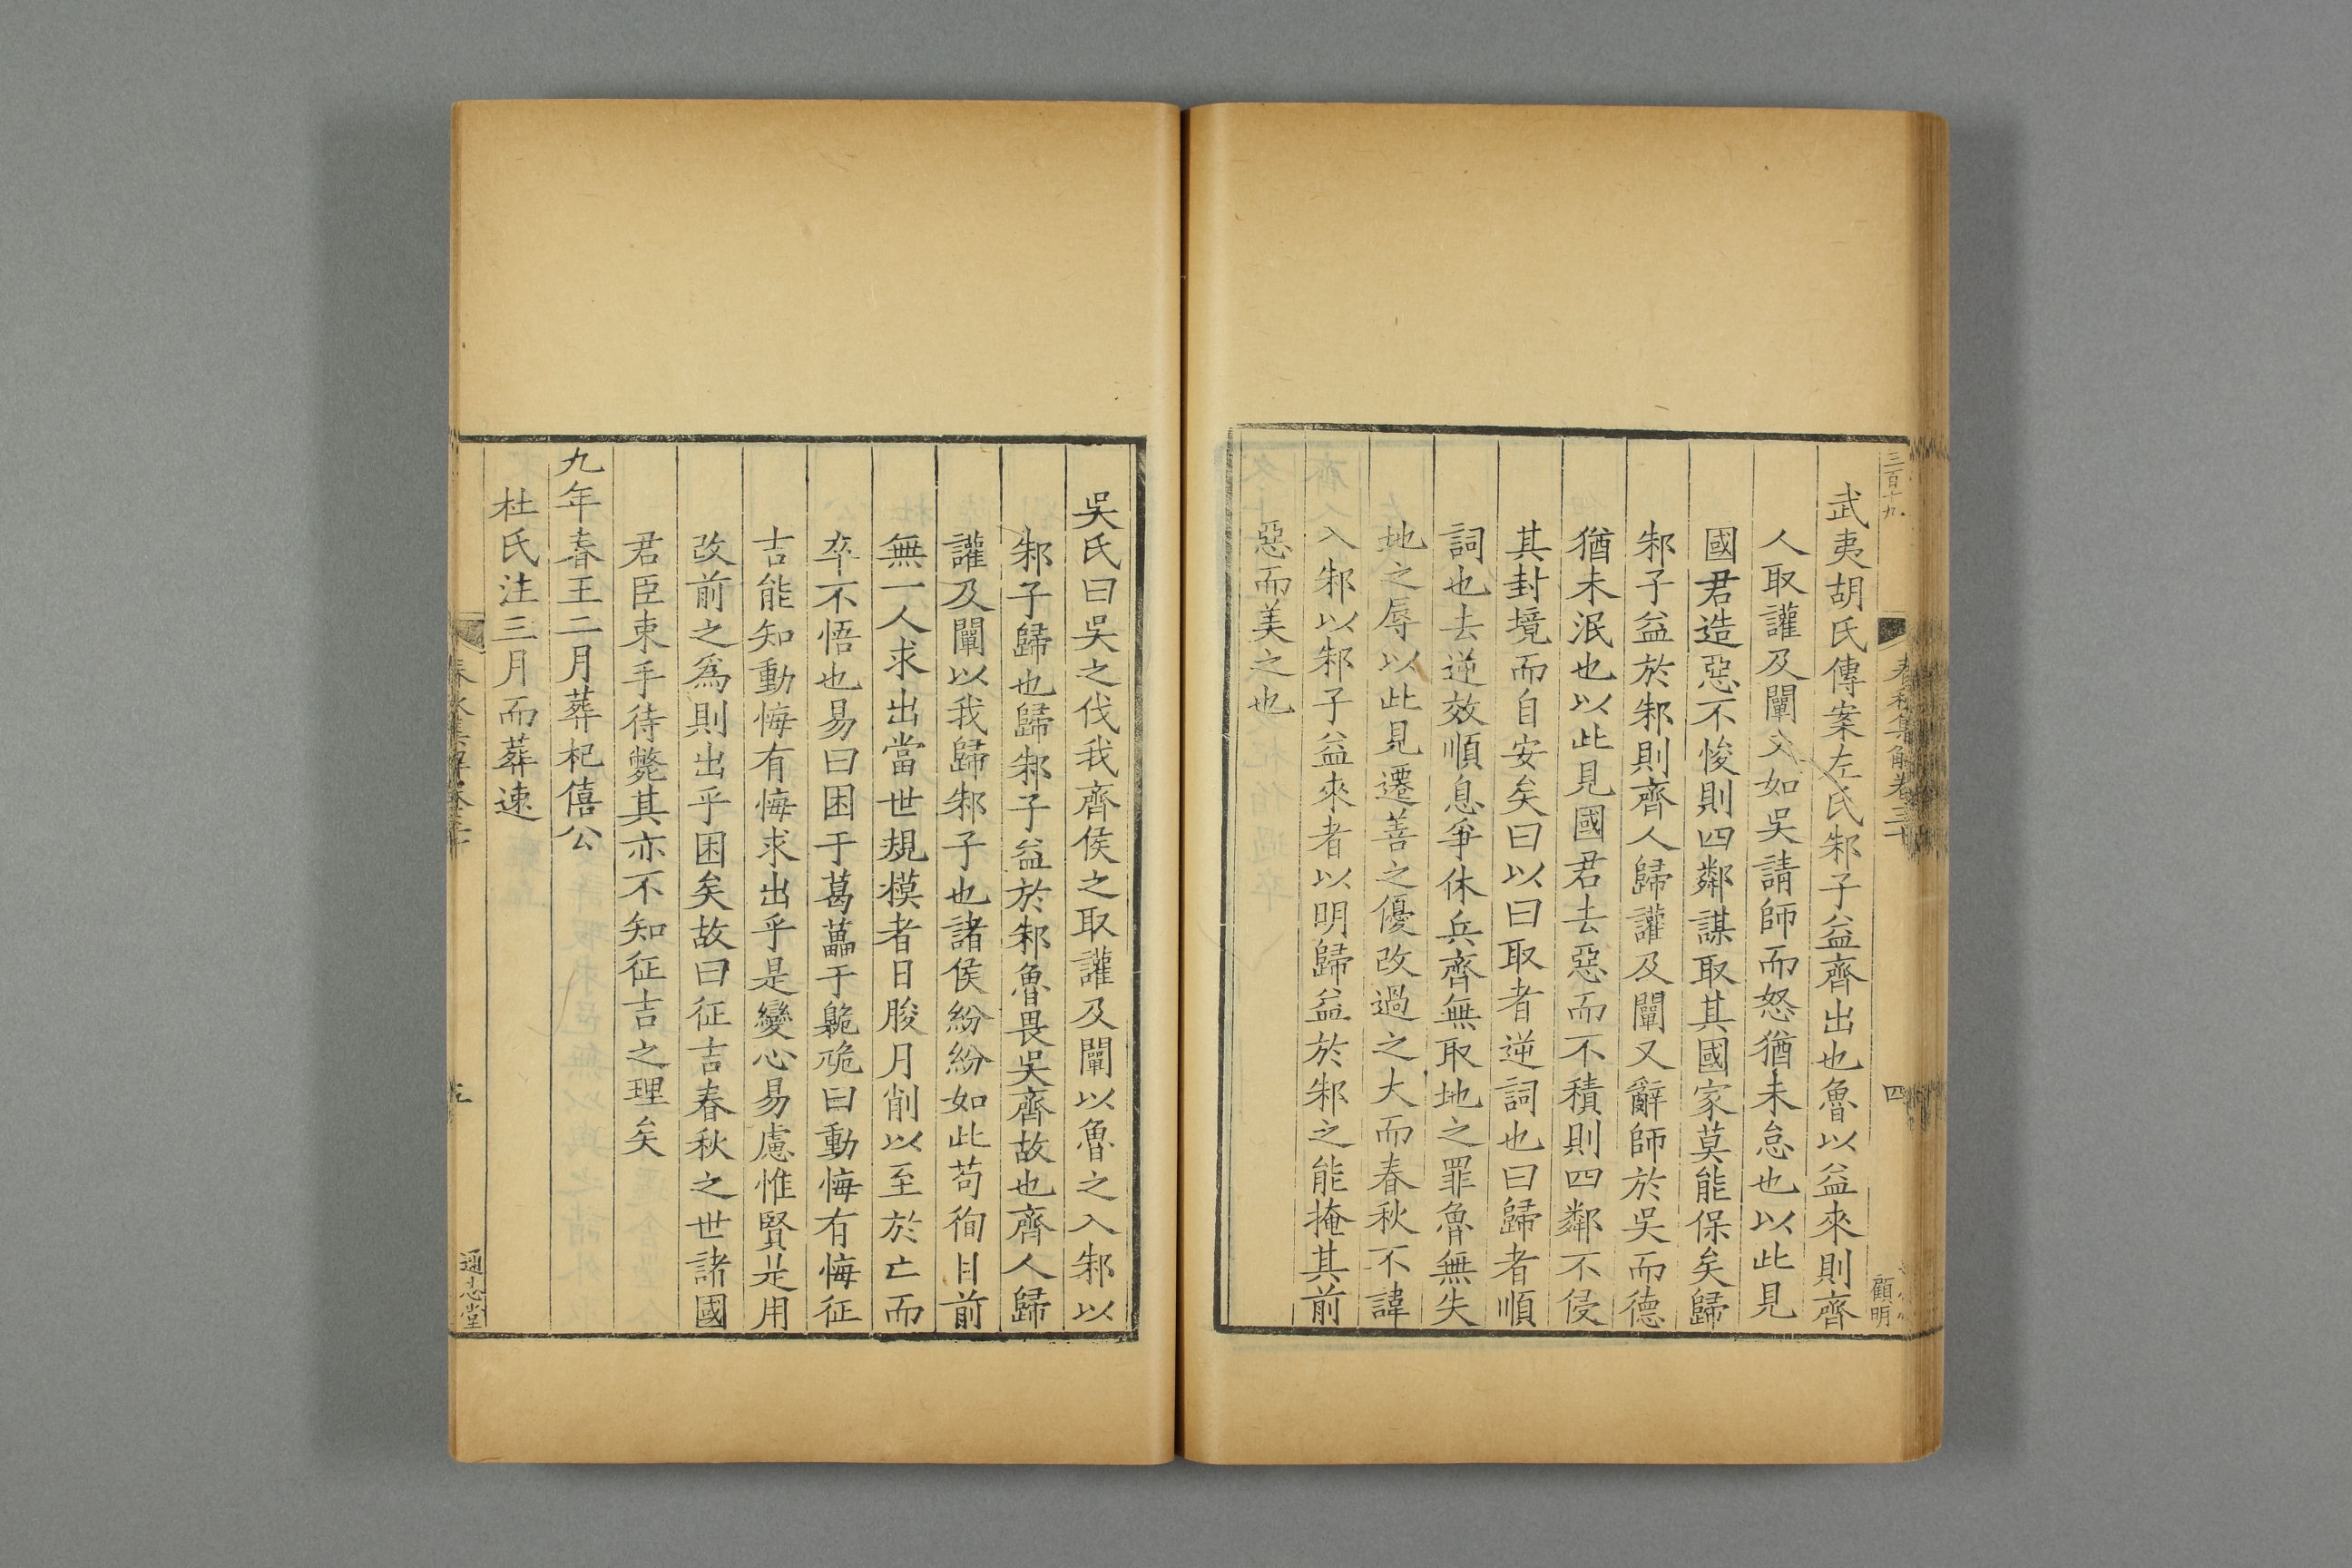 三百十九
春秋集解卷三十
四
顧明
武夷胡氏傳案左氏邾子益齊出也魯以益來則齊
人取讙及闡又如吳請師而怒猶未怠也以此見
國君造惡不悛則四鄰謀取其國家莫能保矣歸
邾子益於邾則齊人歸讙及闡又辭師於吳而德
猶未泯也以此見國君去惡而不積則四鄰不侵
其封境而自安矣曰以曰取者逆詞也曰歸者順
詞也去逆效順息爭休兵齊無取地之罪魯無失
地之辱以此見遷善之優改過之大而春秋不諱
入邾以邾子益來者以明歸益於邾之能掩其前
惡而美之也
吳氏曰吳之伐我齊侯之取讙及闡以魯之入邾以
邾子歸也歸邾子益於邾魯畏吳齊故也齊人歸
讙及闡以我歸邾子也諸侯紛紛如此苟徇目前
無一人求出當世規模者日朘月削以至於亡而
卒不悟也易曰困于葛藟于臲卼曰動悔有悔征
吉能知動悔有悔求出乎是變心易慮惟賢是用
改前之爲則出乎困矣故曰征吉春秋之世諸國
君臣束手待斃其亦不知征吉之理矣
九年春王二月葬杞僖公
杜氏注三月而葬速
五
通志堂